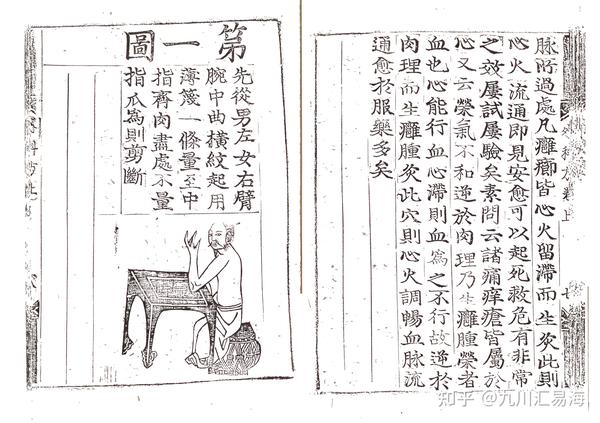 脉所過處凡癰癤皆心火留滯而生灸此則
心火流通即見安愈可以起死救危有非常
之效屢試屢驗矣素問云諸痛痒瘡皆屬於
心又云榮氣不和逆於肉理乃生癰腫榮者
血也心能行血心滯則血為之不行故逆於
肉理而生癰腫灸此穴則心火調暢血脉流
通愈於服藥多矣
第一圖
先從男左女右臂
腕中曲橫紋起用
薄篾一條量至中
指齊肉盡處不量
指爪為則剪斷
知乎 @九川汇易海